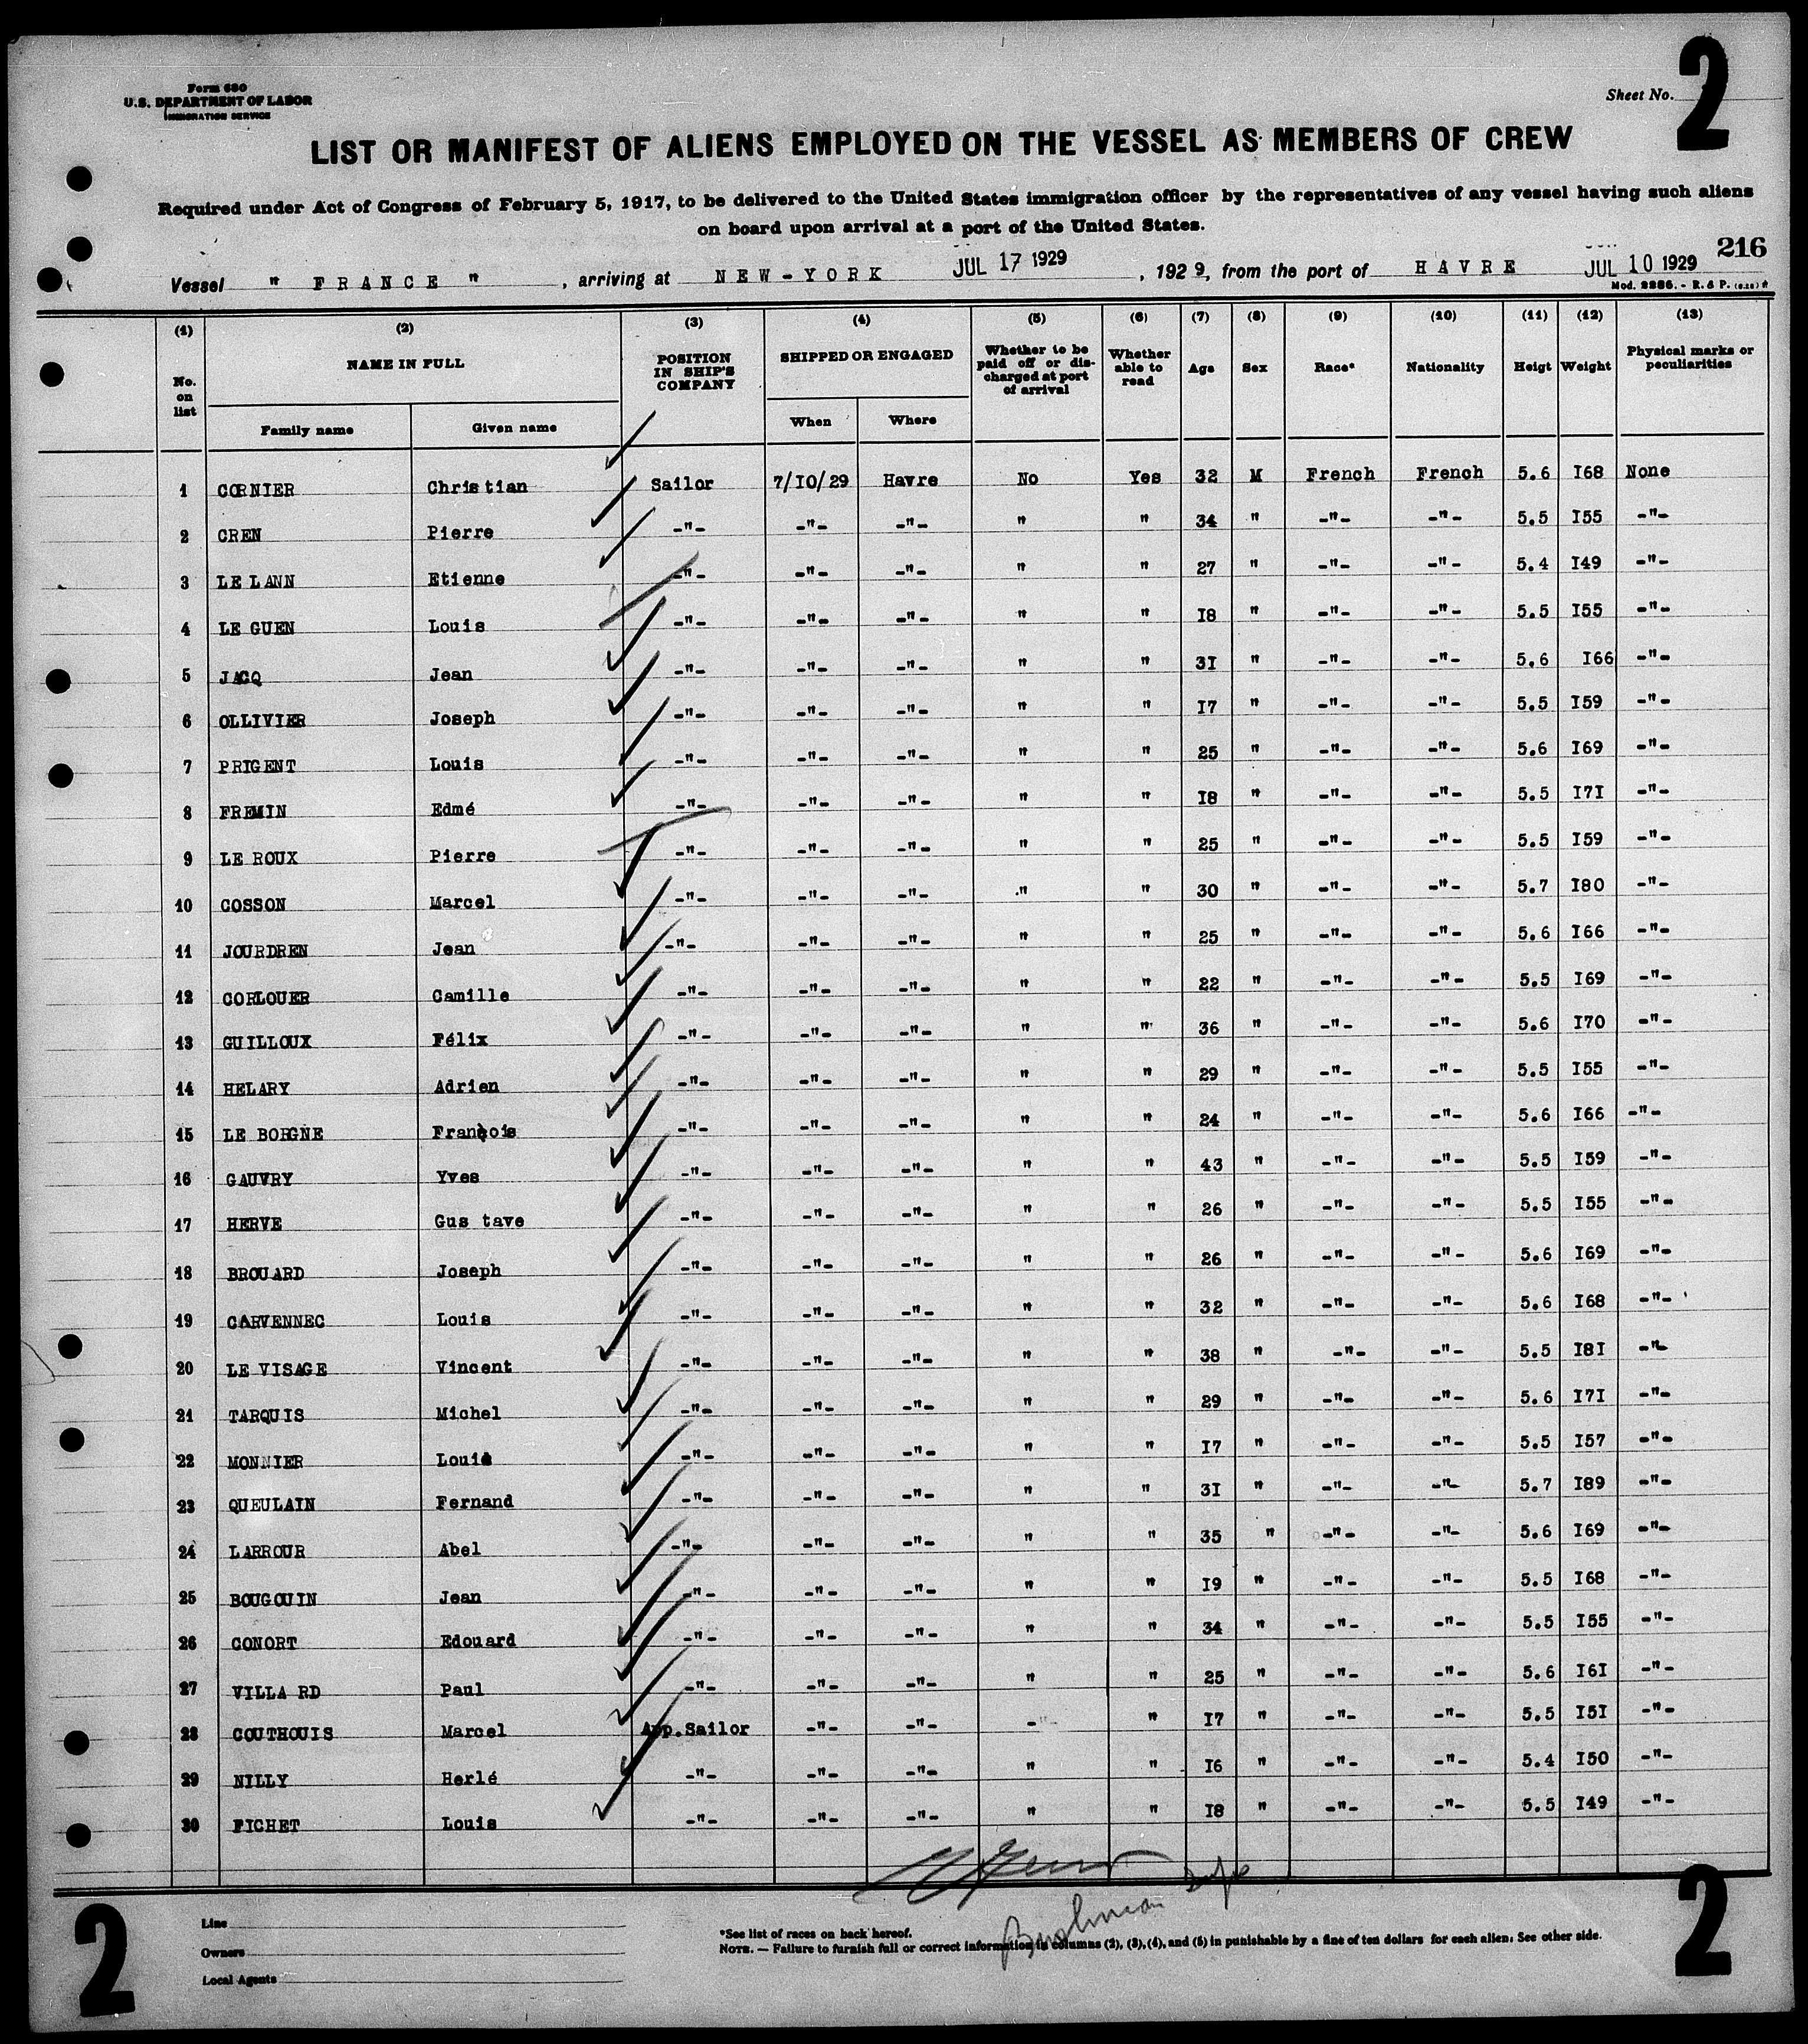 Form 680
U.S. DEPARTMENT OF LABOR
IMMIGRATION SERVICE
Sheet No. 2
LIST OR MANIFEST OF ALIENS EMPLOYED ON THE VESSEL AS MEMBERS OF CREW
Required under Act of Congress of February 5, 1917, to be delivered to the United States immigration officer by the representatives of any vessel having such aliens
on board upon arrival at a port of the United States.
216
Vessel " FRANCE " , arriving at NEW-YORK JUL 17 1929 , 1929, from the port of HAVRE JUL 10 1929
Mod. 2286. - R. & P. (6.28) *
(1) (2) (3) (4) (5) (6) (7) (8) (9) (10) (11) (12) (13)
No. on list NAME IN FULL POSITION IN SHIP'S COMPANY SHIPPED OR ENGAGED Whether to be paid off or discharged at port of arrival Whether able to read Age Sex Race* Nationality Heigt Weight Physical marks or peculiarities
Family name Given name When Where
1 CORNIER Christian Sailor 7/10/29 Havre No Yes 32 M French French 5.6 I68 None
2 CREN Pierre -"- -"- -"- " " 34 " -"- -"- 5.5 I55 -"-
3 LE LANN Etienne -"- -"- -"- " " 27 " -"- -"- 5.4 I49 -"-
4 LE GUEN Louis -"- -"- -"- " " I8 " -"- -"- 5.5 I55 -"-
5 JACQ Jean -"- -"- -"- " " 3I " -"- -"- 5.6 I66 -"-
6 OLLIVIER Joseph -"- -"- -"- " " I7 " -"- -"- 5.5 I59 -"-
7 PRIGENT Louis -"- -"- -"- " " 25 " -"- -"- 5.6 I69 -"-
8 FREMIN Edmé -"- -"- -"- " " I8 " -"- -"- 5.5 I7I -"-
9 LE ROUX Pierre -"- -"- -"- " " 25 " -"- -"- 5.5 I59 -"-
10 COSSON Marcel -"- -"- -"- " " 30 " -"- -"- 5.7 I80 -"-
11 JOURDREN Jean -"- -"- -"- " " 25 " -"- -"- 5.6 I66 -"-
12 CORLOUER Camille -"- -"- -"- " " 22 " -"- -"- 5.5 I69 -"-
13 GUILLOUX Félix -"- -"- -"- " " 36 " -"- -"- 5.6 I70 -"-
14 HELARY Adrien -"- -"- -"- " " 29 " -"- -"- 5.5 I55 -"-
15 LE BORGNE François -"- -"- -"- " " 24 " -"- -"- 5.6 I66 -"-
16 GAUVRY Yves -"- -"- -"- " " 43 " -"- -"- 5.5 I59 -"-
17 HERVE Gus tave -"- -"- -"- " " 26 " -"- -"- 5.5 I55 -"-
18 BROUARD Joseph -"- -"- -"- " " 26 " -"- -"- 5.6 I69 -"-
19 CARVENNEC Louis -"- -"- -"- " " 32 " -"- -"- 5.6 I68 -"-
20 LE VISAGE Vincent -"- -"- -"- " " 38 " -"- -"- 5.5 I8I -"-
21 TARQUIS Michel -"- -"- -"- " " 29 " -"- -"- 5.6 I7I -"-
22 MONNIER Louis -"- -"- -"- " " I7 " -"- -"- 5.5 I57 -"-
23 QUEULAIN Fernand -"- -"- -"- " " 3I " -"- -"- 5.7 I89 -"-
24 LARROUR Abel -"- -"- -"- " " 35 " -"- -"- 5.6 I69 -"-
25 BOUGOUIN Jean -"- -"- -"- " " I9 " -"- -"- 5.5 I68 -"-
26 CONORT Edouard -"- -"- -"- " " 34 " -"- -"- 5.5 I55 -"-
27 VILLA RD Paul -"- -"- -"- " " 25 " -"- -"- 5.6 I6I -"-
28 COUTHOUIS Marcel App.Sailor -"- -"- -" " I7 " -"- -"- 5.5 I5I -"-
29 NILLY Herlé -"- -"- -"- " " I6 " -"- -"- 5.4 I50 -"-
30 FICHET Louis -"- -"- -"- " " I8 " -"- -"- 5.5 I49 -"-
2
2
Line
Owners
Local Agents
*See list of races on back hereof.
NOTE. — Failure to furnish full or correct information in columns (2), (3), (4), and (5) in punishable by a fine of ten dollars for each alien. See other side.